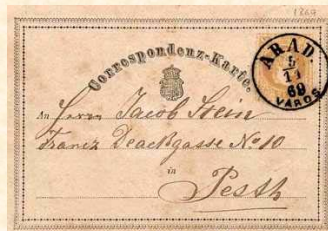 1869
Correspondenz-Karte.
ARAD.
5
10
69
VAROS
An Herrn Jacob Stein
Franz Deackgasse No 10
in
Pesth